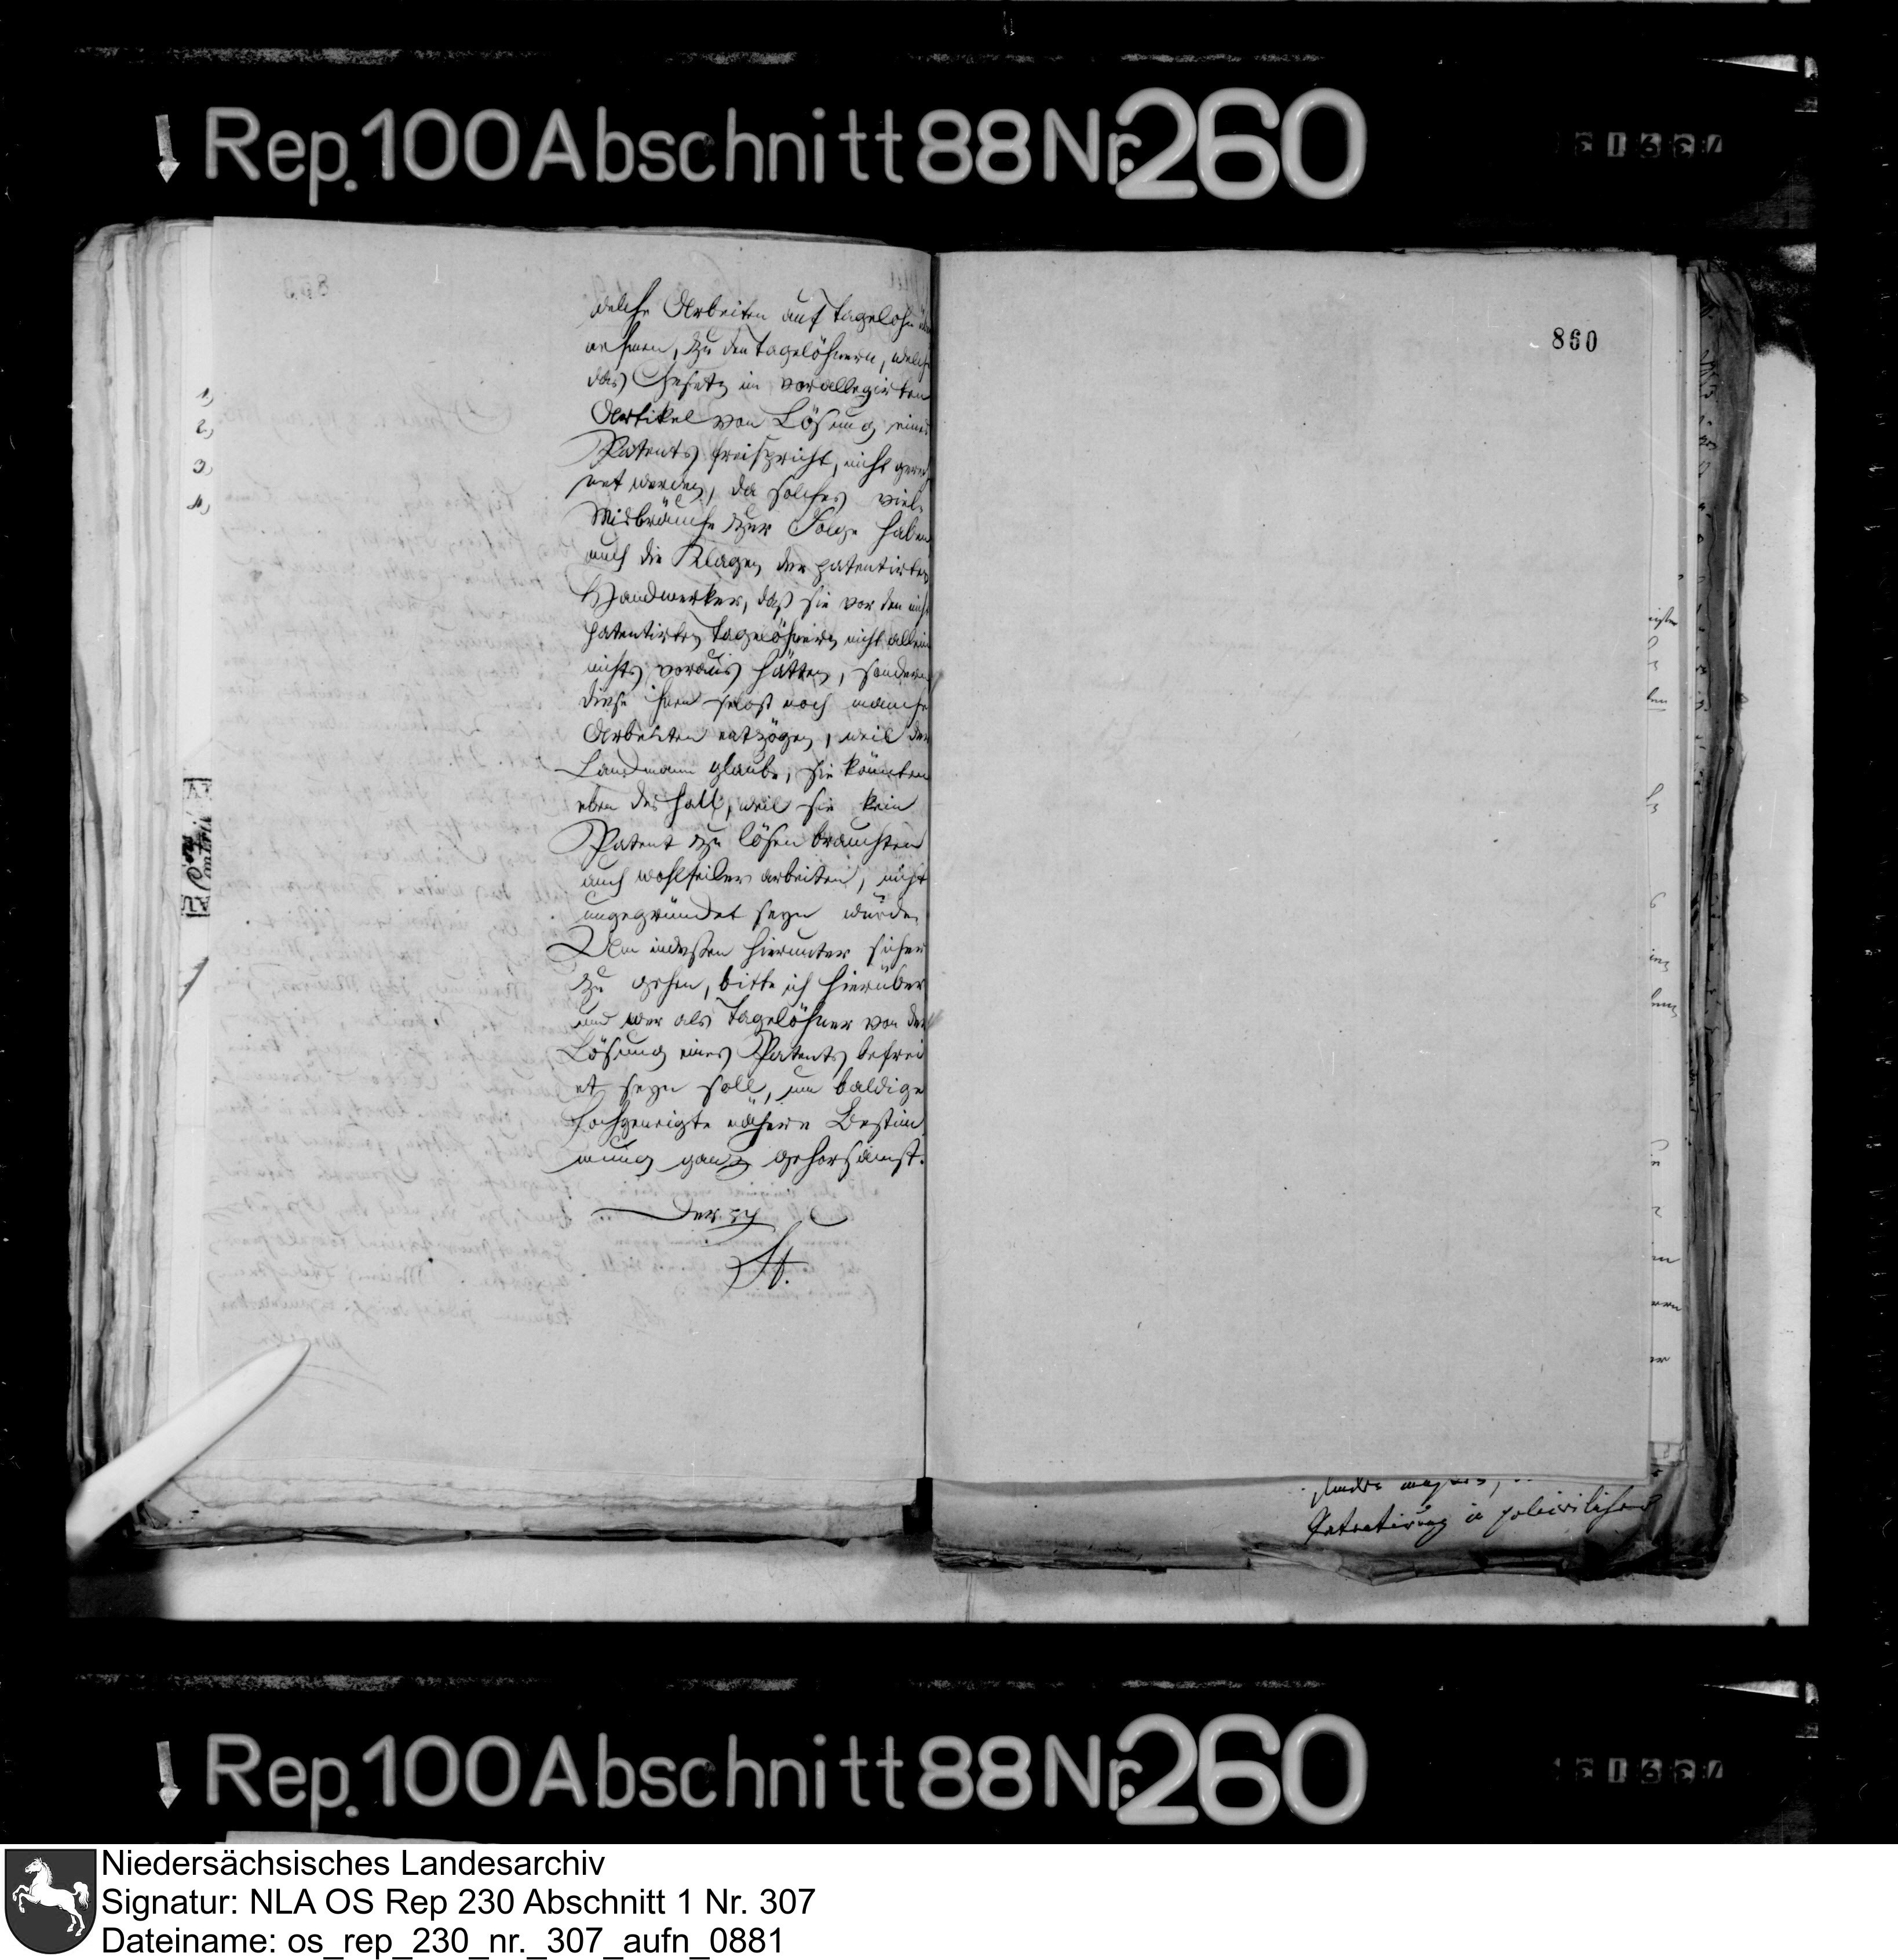 Rep. 100 Abschnitt 88 Nr. 260
860
welche Arbeiten auf Tagelohn
nehmen, zu den Tagelöhnern, welche
das Gesetz im vorallegirten
Artikel von Lösung eines
Patents freispricht, nicht gerech
net werden, da solches viel
Misbräuche zur Folge haben
auch die Klagen der patentirten
Handwerker, daß sie vor den nicht
patentirten Tagelöhnern nicht allein
nichts voraus hätten, sondern
diese ihnen selbst noch manche
Arbeiten entzögen, weil der
Landmann glaube, sie könnten
eben deshalb, weil sie kein
Patent zu lösen brauchten
auch wohlfeiler arbeiten, nicht
ungegründet seyn würde.
Um indeßen hierunter sicher
zu gehen, bitte ich hierüber
und wer als Tagelöhner von der
Lösung eines Patents befrei
et seyn soll, um baldige
hochgeneigte nähere Bestim
mung ganz gehorsamst.
Der
St.
1,)
2,)
3,)
4,)
Patentirung in polizeilicher
Rep. 100 Abschnitt 88 Nr. 260
Niedersächsisches Landesarchiv
Signatur: NLA OS Rep 230 Abschnitt 1 Nr. 307
Dateiname: os_rep_230_nr._307_aufn_0881